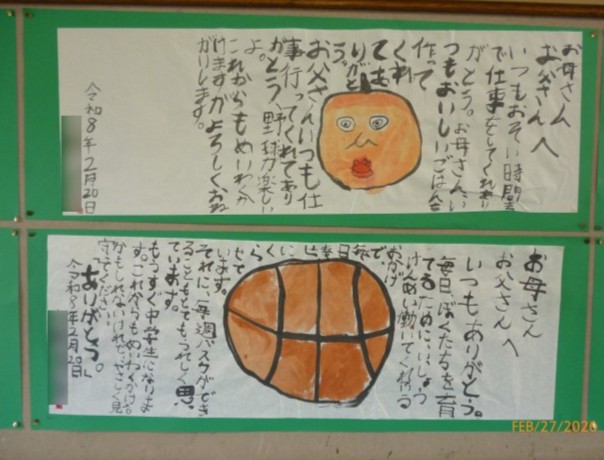 お母さん
お父さんへ
いつもおそい時間ま
で仕事をしてくれあり
がとう。お母さん、い
つもおいしいごはんを
作って
くれ
てあ
りがと
う。
お父さん、いつも仕
事行ってくれてあり
がとう、野球が楽しい
よ。
これからもめいわくか
けますがよろしくおね
がいします。
令和8年2月20日
お母さん
お父さんへ
いつもありがとう。
毎日、ぼくたちを育
てるために、いっしょう
けんめい働いてくれる
おかげ
で
毎日
幸せ
に
く
ら
せて
います。
それに、毎週バスケができ
ることもとてもうれしく思
ています。
もうすぐ中学生になりま
す。これからもめいわくかけ
かもしれないけれど、やさしく見
守てください。
「ありがとう。」
令和8年2月20日
FEB/27/2026